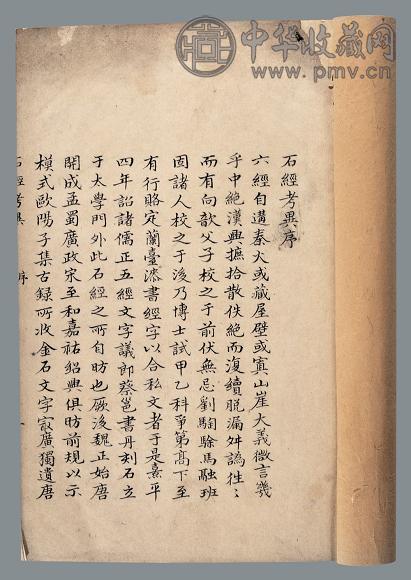 中华收藏网
www.pmv.cn
石經考異序
六經自遘秦火或藏屋壁或寘山崖大義微言幾
乎中絶漢興摭拾散佚絶而復續脱漏舛譌徃〻
而有向歆父子校之于前伏無忌劉騊駼馬融班
固諸人校之于後乃博士試甲乙科爭第髙下至
有行賂定蘭臺漆書經字以合私文者于是熹平
四年詔諸儒正五經文字議郎蔡邕書丹刻石立
于太學門外此石經之所自昉也厥後魏正始唐
開成孟蜀廣政宋至和嘉祐紹興俱昉前規以示
模式歐陽子集古録所收金石文字㝡廣獨遺唐
石經考異 序